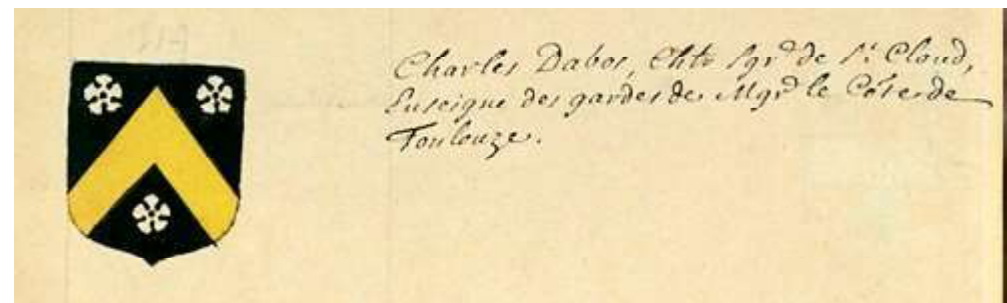 Charles Dabos, Chlr Sgr de St Cloud,
Enseigne des gardes de Mgr le Côte de
Toulouze.